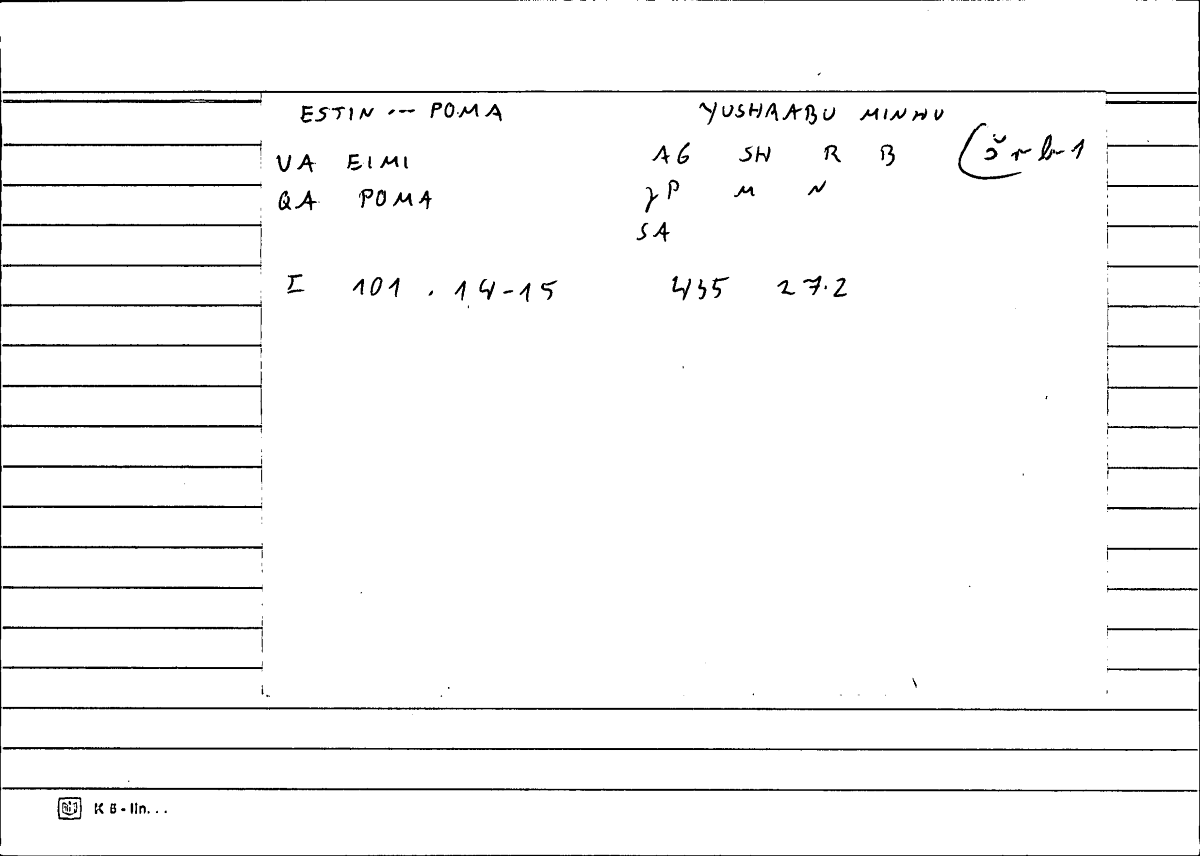 ESTIN ... POMA YUSHRABU MINHU
VA EIMI AG SH R B (šrb-1
QA POMA γP M N
SA
I 101 . 14-15 435 27.2
K B - lin...